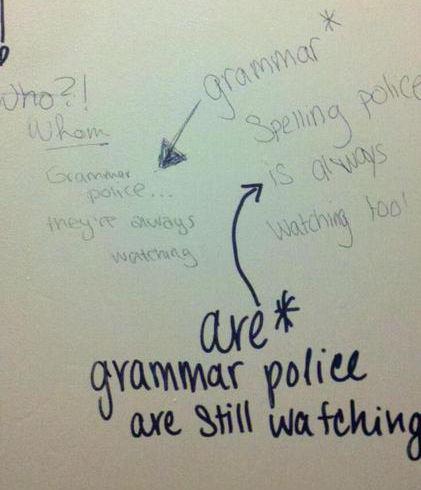 Who?!
Whom
Grammer
police...
they're always
watching
grammar*
Spelling police
is always
watching too!
are*
grammar police
are still watching